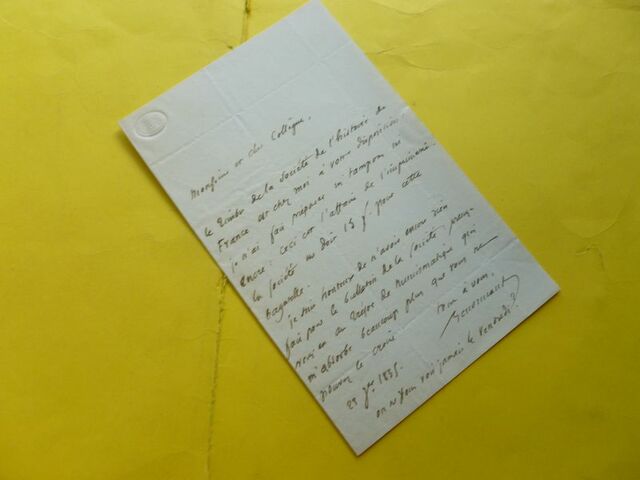 Monsieur et cher Collègue,
le timbre de la Société de l'histoire de
France est chez moi à votre disposition.
je n'ai fait préparer ni tampon ni
encre : ceci est l'affaire de l'imprimerie.
la Société me doit 15 f. pour cette
bagatelle.
je suis honteux de n'avois encore rien
fait pour le bulletin de la Société pren
nés en au trésor de Numismatique qui
m'absorbe beaucoup plus que vous ne
pouvez le croire
tout à vous.
Lenormant
23 1835.
on ne vous voit jamais le Vendredi ?